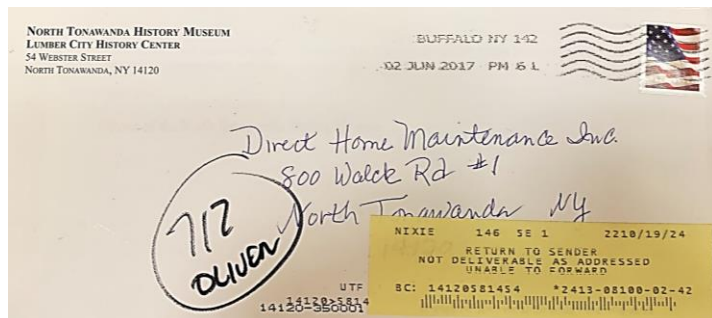 NORTH TONAWANDA HISTORY MUSEUM
LUMBER CITY HISTORY CENTER
54 WEBSTER STREET
NORTH TONAWANDA, NY 14120
BUFFALO NY 142
02 JUN 2017 PM 6 L
Direct Home Maintenance Inc.
800 Walck Rd #1
North Tonawanda NY
712
OLIVER
NIXIE 146 SE 1 2210/19/24
RETURN TO SENDER
NOT DELIVERABLE AS ADDRESSED
UNABLE TO FORWARD
UTF
BC: 14120581454 *2413-08100-02-42
14120>5814
14120-350001